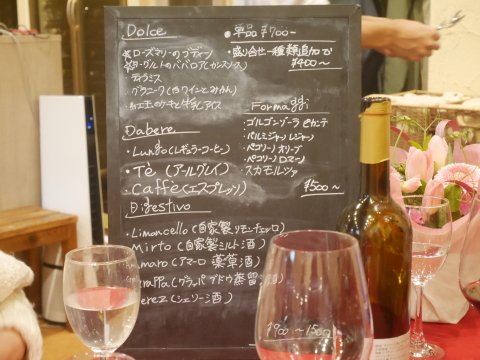 Dolce
☆ローズマリーのプディーノ
☆ヨーグルトのババロア(カシスソース)
ティラミス
グラニータ(赤ワインとみかん)
・紅玉のケーキと牛乳アイス
・単品 ¥700-
・盛り合せ一種類追加で
¥400〜
Formaggi
・ゴルゴンゾーラ ピカンテ
・パルミジャーノ レジャーノ
・ペコリーノ オリーブ
・ペコリーノ ロマーノ
・スカモルツァ
¥500〜
Dabere
・Lungo(レギュラーコーヒー)
・Tè (アールグレイ)
・Caffè(エスプレッソ)
Digestivo
・Limoncello (自家製リモンチェッロ)
・Mirto (自家製ミルト酒)
Amaro (アマーロ 薬草酒)
(グラッパ ブドウ蒸留酒)
(シェリー酒)
¥900〜